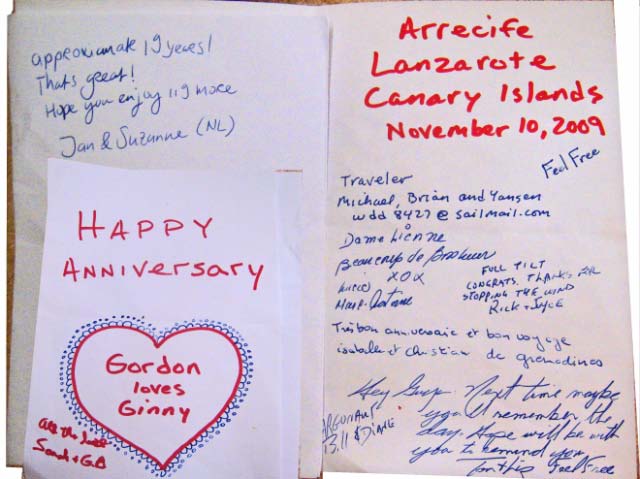 approximate 19 years!
Thats great!
Hope you enjoy 119 more
Jan & Suzanne (NL)
HAPPY
ANNIVERSARY
Gordon
loves
Ginny
All the
Sarah + G.B
Arrecife
Lanzarote
Canary Islands
November 10, 2009
Feel Free
Traveler
Michael, Brian and Yansen
wdd 8427 @ sailmail.com
Beaucoup de Bonheur
XOX
FULL TILT
CONGRATS. THANKS FOR
STOPPING THE WIND
RICK + JOYCE
Très bon anniversaire et bon voyage
isabelle et christian de grenadines
ARGONAUT
13.11 & DIANE
Hey Guys. Next time maybe
you'll remember the
day. Hope will be with
you to remind you
Feel Free